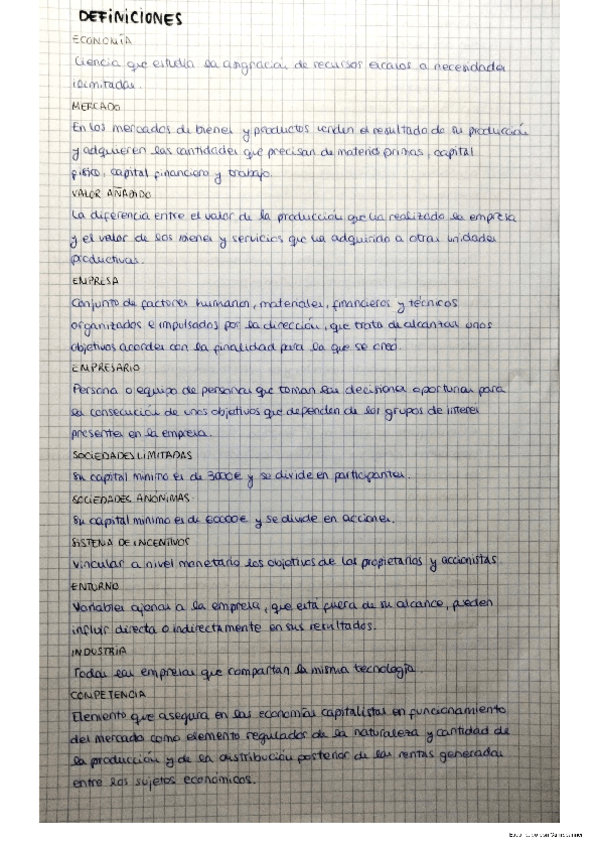 DEFINICIONES
ECONOMÍA
Ciencia que estudia la asignación de recursos escasos a necesidades
ilimitadas.
MERCADO
En los mercados de bienes y productos venden el resultado de su producción
y adquieren las cantidades que precisan de materias primas, capital
físico, capital financiero y trabajo.
VALOR AÑADIDO
La diferencia entre el valor de la producción que ha realizado la empresa
y el valor de los bienes y servicios que ha adquirido a otras unidades
productivas.
EMPRESA
Conjunto de factores humanos, materiales, financieros y técnicos
organizados e impulsados por la dirección, que trata de alcanzar unos
objetivos acordes con la finalidad para la que se creó.
EMPRESARIO
Persona o equipo de personas que toman las decisiones oportunas para
la consecución de unos objetivos que dependen de los grupos de interes
presentes en la empresa.
SOCIEDADES LIMITADAS
Su capital minimo es de 3000€ y se divide en participantes.
SOCIEDADES ANÓNIMAS
Su capital minimo es de 60000€ y se divide en acciones.
SISTEMA DE INCENTIVOS
Vincular a nivel monetario los objetivos de los propietarios y accionistas
ENTORNO
Variables ajenas a la empresa, que está fuera de su alcance, pueden
influir directa o indirectamente en sus resultados.
INDUSTRIA
Todas las empresas que compartan la misma tecnología
COMPETENCIA
Elemento que asegura en las economías capitalistas en funcionamiento
del mercado como elemento regulador de la naturaleza y cantidad de
la producción y de la distribución posterior de las rentas generadas
entre los sujetos economicos.